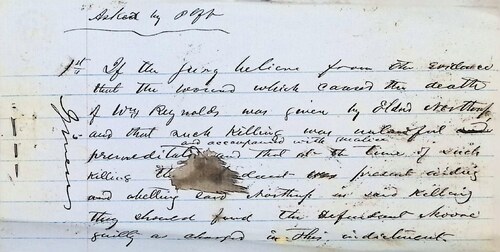 Asked by Plff
1st If the jury believe from the evidence
that the wound which caused the death
of Wm Reynolds was given by Eldad Northrop
and that such killing was unlawful
and accompanied with malice
premeditated and that at the time of such
killing the present aiding
and abetting said Northrop in said killing
they should find the defendant Moore
guilty as charged in this indictment.
Given